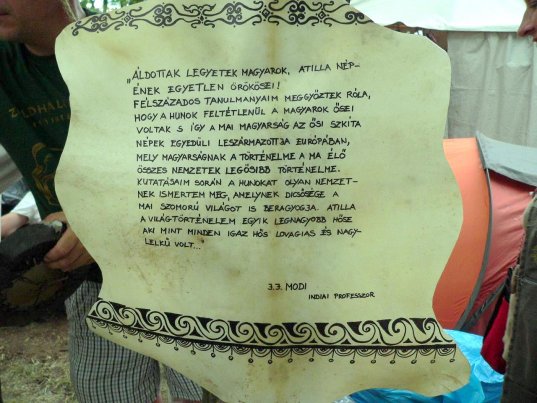 ZÖLDHAL
„ÁLDOTTAK LEGYETEK MAGYAROK, ATILLA NÉP-
ÉNEK EGYETLEN ÖRÖKÖSEI!
FÉLSZÁZADOS TANULMÁNYAIM MEGGYŐZTEK RÓLA,
HOGY A HUNOK FELTÉTLENÜL A MAGYAROK ŐSEI
VOLTAK S ÍGY A MAI MAGYARSÁG AZ ŐSI SZKÍTA
NÉPEK EGYEDÜLI LESZÁRMAZOTTJA EURÓPÁBAN,
MELY MAGYARSÁGNAK A TÖRTÉNELME A MA ÉLŐ
ÖSSZES NEMZETEK LEGŐSIBB TÖRTÉNELME.
KUTATÁSAIM SORÁN A HUNOKAT OLYAN NEMZET-
NEK ISMERTEM MEG, AMELYNEK DICSŐSÉGE A
MAI SZOMORÚ VILÁGOT IS BERAGYOGJA. ATILLA
A VILÁGTÖRTÉNELEM EGYIK LEGNAGYOBB HŐSE
AKI MINT MINDEN IGAZ HŐS LOVAGIAS ÉS NAGY-
LELKŰ VOLT...
3.3. MODI
INDIAI PROFESSZOR